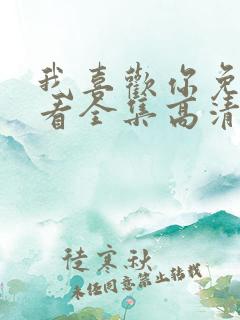 我喜歡你免
看全集高清
徒寒秋
未经同意禁止转载